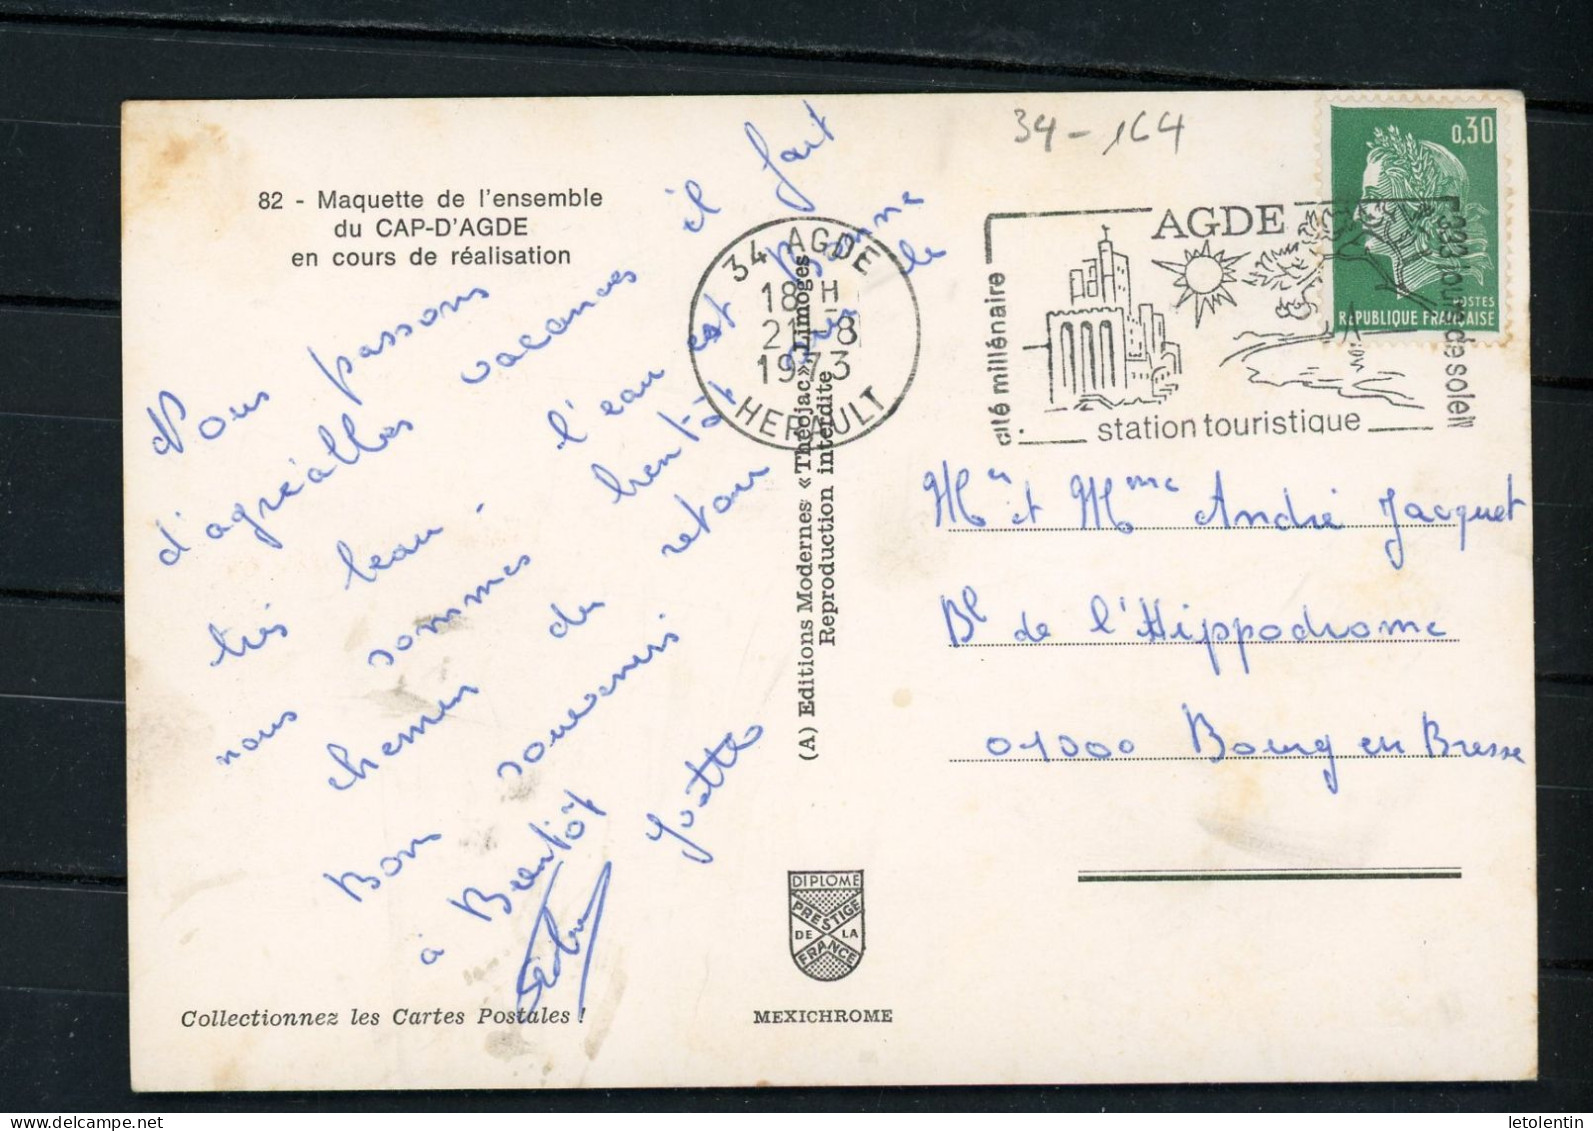 34-164
0,30
POSTES
REPUBLIQUE FRANÇAISE
82 - Maquette de l'ensemble
du CAP-D'AGDE
en cours de réalisation
34 AGDE
18 H
21-8
1973
HERAULT
AGDE
cité millénaire
station touristique
jours de soleil
Nous passons
d'agréables vacances il fait
très beau, l'eau est Bonne
nous sommes bientôt sur le
chemin du retour
Bons souvenirs
à Bientôt Yvette
(A) Editions Modernes «Théojac», Limoges
Reproduction interdite
Mr et Mme André Jacquet
Bd de l'Hippodrome
01000 Bourg en Bresse
DIPLOME
PRESTIGE
DE LA
FRANCE
MEXICHROME
Collectionnez les Cartes Postales !
letolentin